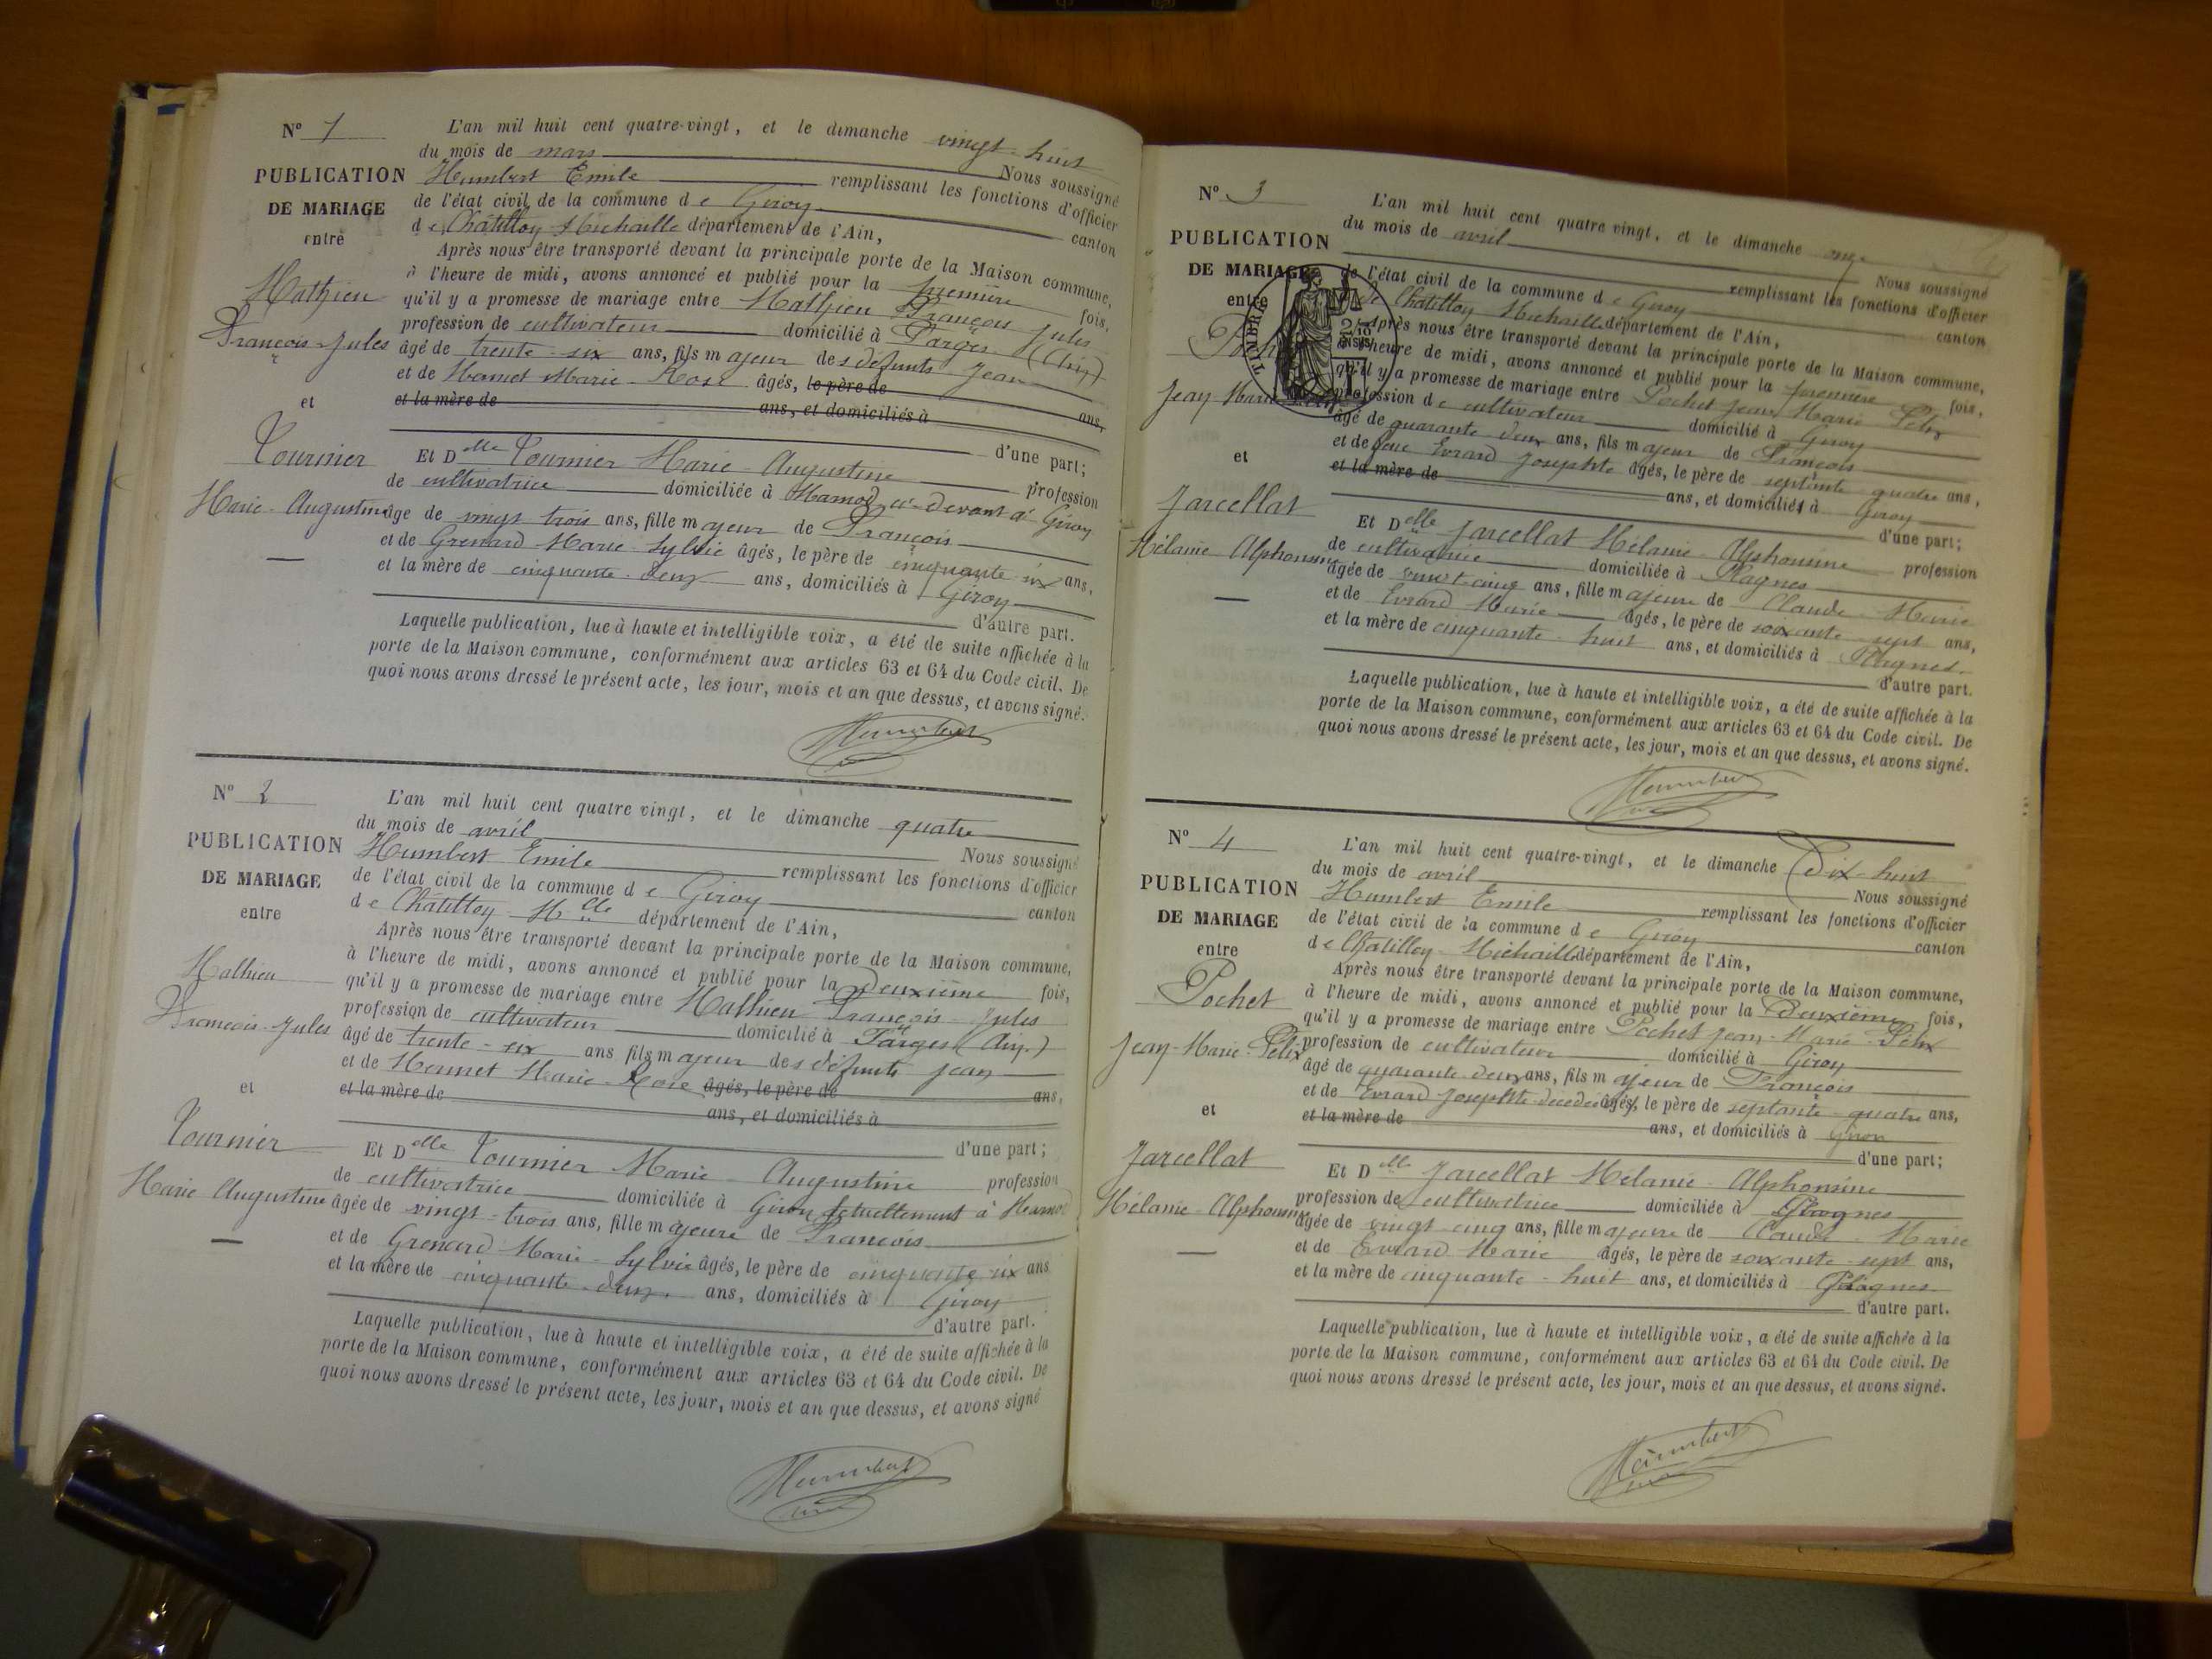 N° 1
PUBLICATION
DE MARIAGE
entre
Mathieu
François-Jules
et
Tournier
Marie-Augustine
L'an mil huit cent quatre-vingt, et le dimanche vingt-huit
du mois de mars Nous soussigné
Humbert Emile remplissant les fonctions d'officier
de l'état civil de la commune de Giron canton
de Châtillon Michaille département de l'Ain,
Après nous être transporté devant la principale porte de la Maison commune,
à l'heure de midi, avons annoncé et publié pour la première fois,
qu'il y a promesse de mariage entre Mathieu François Jules
profession de cultivateur domicilié à Farges (Ain)
âgé de trente-six ans, fils majeur des défunts Jean
et de Hamet Marie-Rose âgés, le père de ans,
et la mère de ans, et domiciliés à
d'une part;
Et Delle Tournier Marie-Augustine profession
de cultivatrice domiciliée à Marnod ci-devant à Giron
âge de vingt trois ans, fille majeur de François
et de Grenard Marie-Sylvie âgés, le père de cinquante six ans,
et la mère de cinquante-deux ans, domiciliés à Giron
d'autre part.
Laquelle publication, lue à haute et intelligible voix, a été de suite affichée à la
porte de la Maison commune, conformément aux articles 63 et 64 du Code civil. De
quoi nous avons dressé le présent acte, les jour, mois et an que dessus, et avons signé.
Humbert
N° 2
PUBLICATION
DE MARIAGE
entre
Mathieu
François-Jules
et
Tournier
Marie Augustine
L'an mil huit cent quatre vingt, et le dimanche quatre
du mois de avril Nous soussigné
Humbert Emile remplissant les fonctions d'officier
de l'état civil de la commune de Giron canton
de Châtillon-Mlle département de l'Ain,
Après nous être transporté devant la principale porte de la Maison commune,
à l'heure de midi, avons annoncé et publié pour la Deuxième fois,
qu'il y a promesse de mariage entre Mathieu François-Jules
profession de cultivateur domicilié à Farges (Ain)
âgé de trente-six ans fils majeur des défunts Jean
et de Hamet Marie-Rose âgés, le père de ans,
et la mère de ans, et domiciliés à
d'une part;
Et Delle Tournier Marie Augustine profession
de cultivatrice domiciliée à Giron actuellement à
âgée de vingt-trois ans, fille majeure de François
et de Grenard Marie-Sylvie âgés, le père de cinquante six ans
et la mère de cinquante-deux ans, domiciliés à Giron
d'autre part.
Laquelle publication, lue à haute et intelligible voix, a été de suite affichée à la
porte de la Maison commune, conformément aux articles 63 et 64 du Code civil. De
quoi nous avons dressé le présent acte, les jour, mois et an que dessus, et avons signé
Humbert
N° 3
PUBLICATION
DE MARIAGE
entre
Pochet
Jean Marie
et
Jarcellat
Mélanie Alphonsine
TIMBRE
L'an mil huit cent quatre vingt, et le dimanche onze
du mois de avril Nous soussigné
remplissant les fonctions d'officier
de l'état civil de la commune de Giron canton
de Châtillon Michaille département de l'Ain,
Après nous être transporté devant la principale porte de la Maison commune,
à l'heure de midi, avons annoncé et publié pour la première fois,
qu'il y a promesse de mariage entre Pochet Jean Marie Félix
profession de cultivateur domicilié à Giron
âgé de quarante deux ans, fils majeur de François
et de feue Evrard Josephte âgés, le père de septante-quatre ans,
et la mère de ans, et domiciliés à Giron
d'une part;
Et Delle Jarcellat Mélanie-Alphonsine profession
de cultivatrice domiciliée à Plagnes
âgée de vingt-cinq ans, fille majeure de Claude-Marie
et de Evrard Marie âgés, le père de soixante-sept ans,
et la mère de cinquante-huit ans, et domiciliés à Plagnes
d'autre part.
Laquelle publication, lue à haute et intelligible voix, a été de suite affichée à la
porte de la Maison commune, conformément aux articles 63 et 64 du Code civil. De
quoi nous avons dressé le présent acte, les jour, mois et an que dessus, et avons signé.
Humbert
N° 4
PUBLICATION
DE MARIAGE
entre
Pochet
Jean-Marie-Félix
et
Jarcellat
Mélanie-Alphonsine
L'an mil huit cent quatre-vingt, et le dimanche Dix-huit
du mois de avril Nous soussigné
Humbert Emile remplissant les fonctions d'officier
de l'état civil de la commune de Giron canton
de Châtillon-Michaille département de l'Ain,
Après nous être transporté devant la principale porte de la Maison commune,
à l'heure de midi, avons annoncé et publié pour la Deuxième fois,
qu'il y a promesse de mariage entre Pochet Jean-Marie-Félix
profession de cultivateur domicilié à Giron
âgé de quarante-deux ans, fils majeur de François
et de Evrard Josephte décédée âgés, le père de septante-quatre ans,
et la mère de ans, et domiciliés à Giron
d'une part;
Et Delle Jarcellat Mélanie-Alphonsine
profession de cultivatrice domiciliée à Plagnes
âgée de vingt-cinq ans, fille majeure de Claude-Marie
et de Evrard Marie âgés, le père de soixante-sept ans,
et la mère de cinquante-huit ans, et domiciliés à Plagnes
d'autre part.
Laquelle publication, lue à haute et intelligible voix, a été de suite affichée à la
porte de la Maison commune, conformément aux articles 63 et 64 du Code civil. De
quoi nous avons dressé le présent acte, les jour, mois et an que dessus, et avons signé.
Humbert